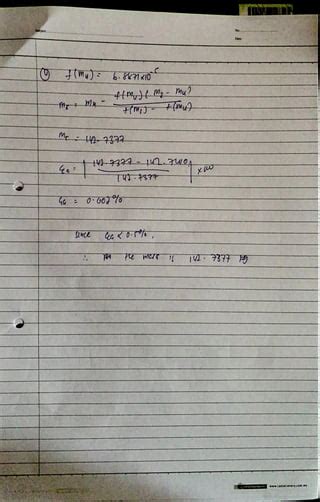 f(mu) = 6.8671x10^-5
mr = mu - f(mu)(ml - mu) / f(ml) - f(mu)
mr = 142.7377
εa = | 142.7377 - 142.7340 / 142.7377 | x 100
εa = 0.002%
since εa < 0.5%,
∴ the mass is 142.7377 kg